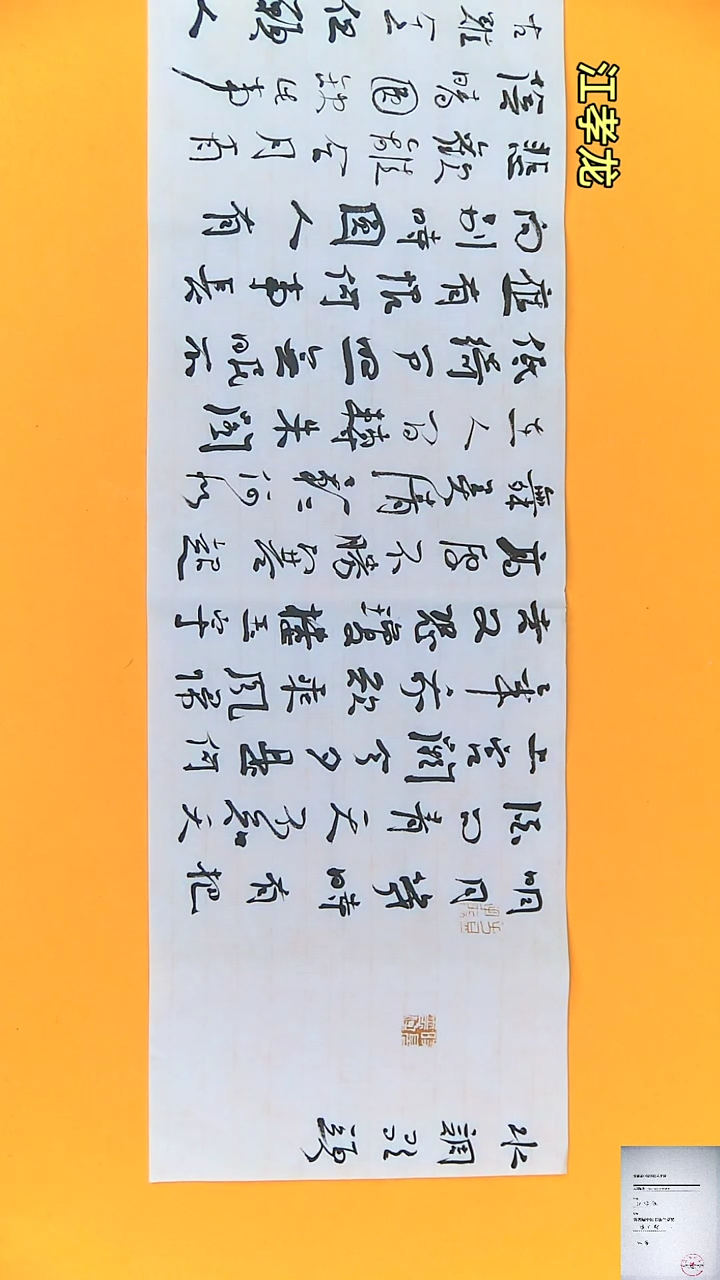 江孝龙
水調歌頭
明月幾時有把
酒问青天不知天
上宫闕今夕是何
年我欲乘風歸
去又恐瓊樓玉宇
高處不勝寒起
舞弄清影何似
在人间轉朱閣
低綺户照無眠不
應有恨何事長
向别時圓人有
悲歡離合月有
陰晴圓缺此事
古難全但願人